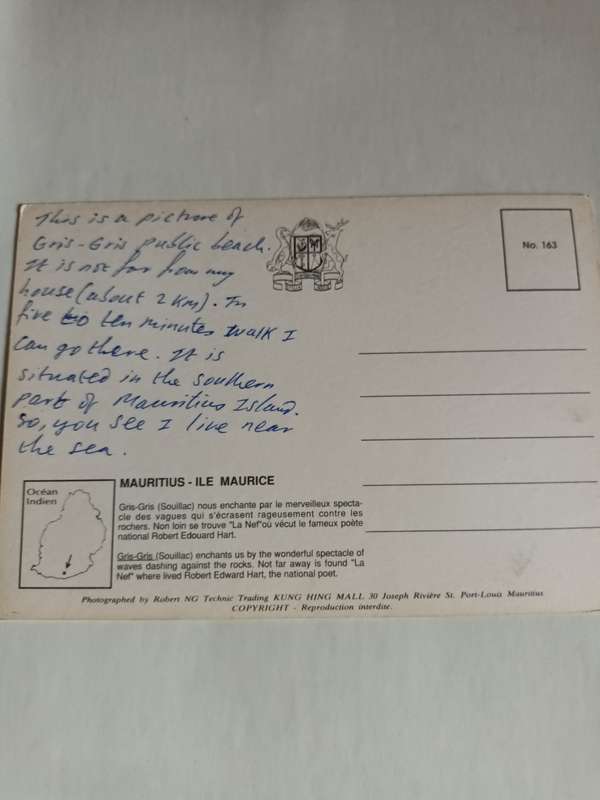 This is a picture of
Gris-Gris public beach.
It is not far from my
house (about 2 Km). In
five to ten minutes walk I
can go there. It is
situated in the southern
part of Mauritius Island.
So, you see I live near
the sea.
No. 163
Océan
Indien
MAURITIUS - ILE MAURICE
Gris-Gris (Souillac) nous enchante par le merveilleux specta-
cle des vagues qui s'écrasent rageusement contre les
rochers. Non loin se trouve "La Nef"où vécut le fameux poète
national Robert Edouard Hart.
Gris-Gris (Souillac) enchants us by the wonderful spectacle of
waves dashing against the rocks. Not far away is found "La
Nef" where lived Robert Edward Hart, the national poet.
Photographed by Robert NG Technic Trading KUNG HING MALL 30 Joseph Rivière St. Port-Louis Mauritius
COPYRIGHT - Reproduction interdite.